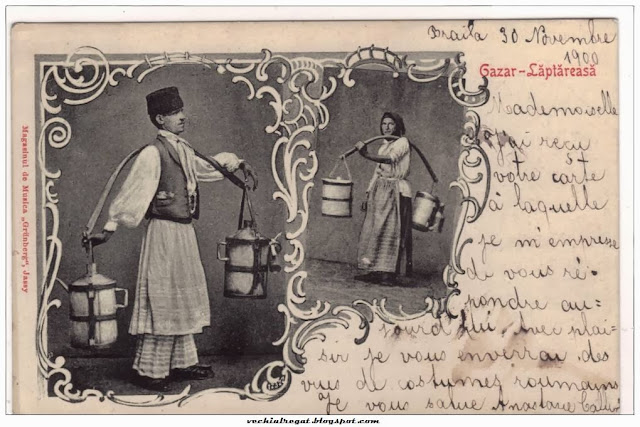 Braila 30 Novembre
1900
Gazar-Lăptăreasă
Mademoiselle
J'ai reçu
votre carte
à laquelle
je m'empresse
de vous ré-
pondre au=
jourd'hui avec plai-
sir je vous enverrai des
vues de costumes roumains
Je vous salue Anastasie
Magasinul de Musica „Grünberg", Jassy
vechiulregat.blogspot.com